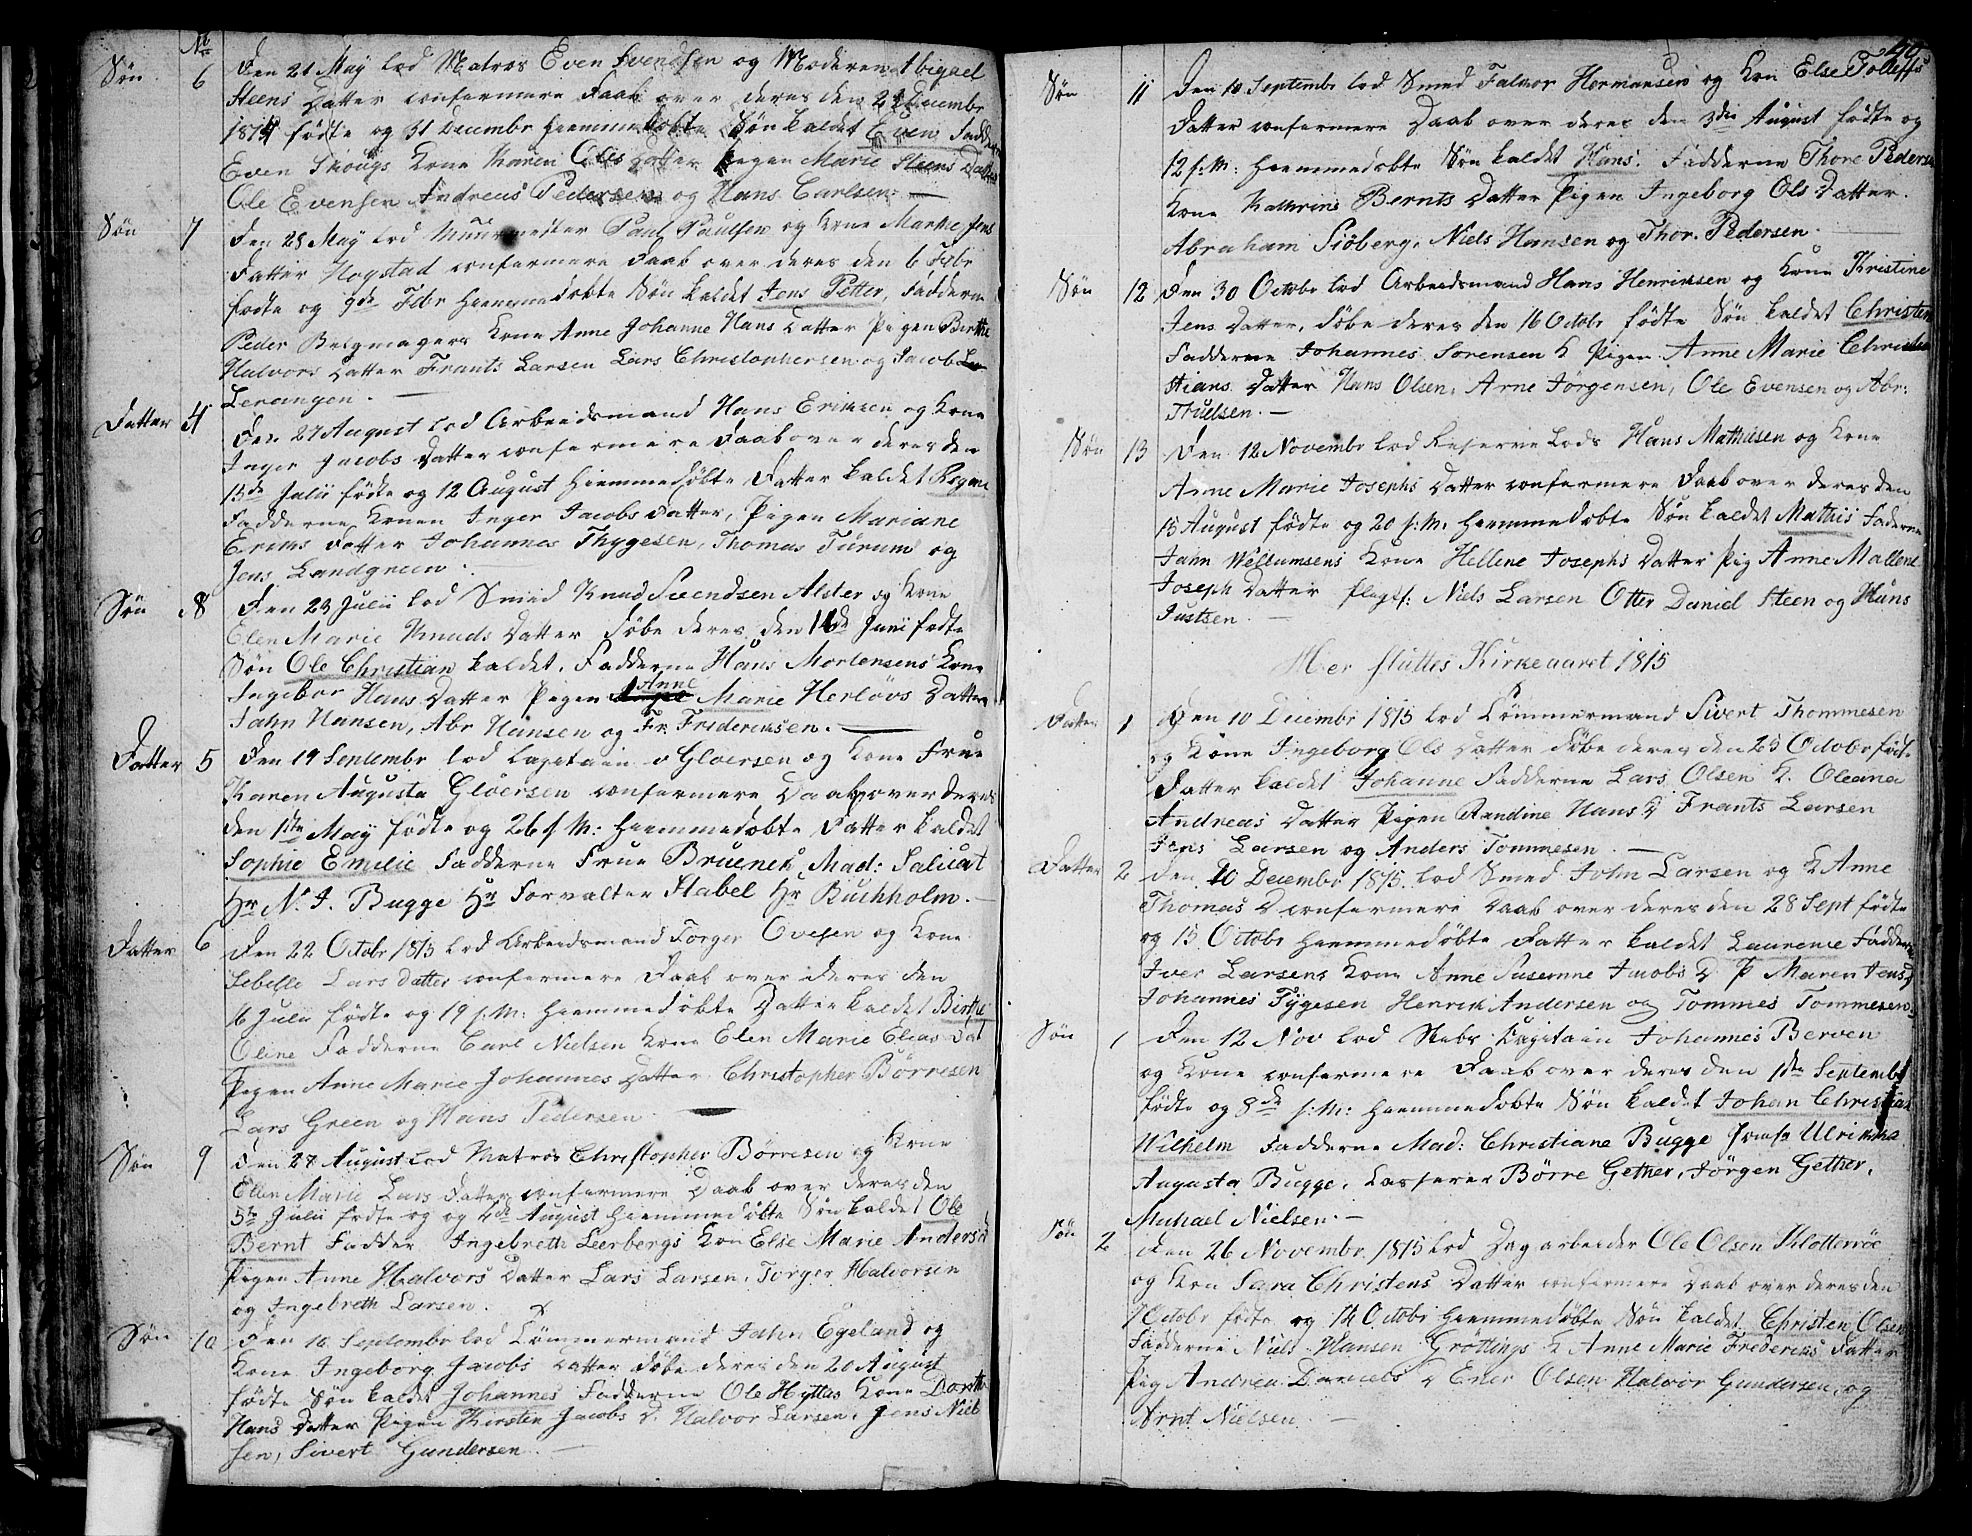 No
Søn 6 Den 21 May lod Matros Even Svendsen og Moderen Abigael
Steens Datter confermere Daab over deres den 2 Decembr
1814 fødte og 31 Decembr hiemmedøbte Søn kaldet Even Fadderne
Even Skougs Kone Karen Ols Datter Pigen Marie Steens Datter
Ole Evensen Andreas Pedersen og Hans Carlsen. —
Søn 7 Den 28 May lod Muurmester Paul Paulsen og Kone Marthe Jens
Datter Hogstad confermere Daab over deres den 6 Febr
fødte og 9de Febr hiemmedøbte Søn kaldet Jens Petter, Fadderne
Peder Bergmagers Kone Anne Johanne Hans Datter Pigen Birthe
Halvors Datter Frants Larsen Lars Christophersen og Jacob
Lerangen. —
Datter 4 Den 27 August lod Arbeidsmand Hans Eriksen og Kone
Inger Jacobs Datter confermere Daab over deres den
15de Julii fødte og 12 August hiemmedøbte Datter kaldet
Fadderne Konen Inger Jacobs Datter, Pigen Mariane
Eriks Datter Johannes Thygesen, Thomas Turum og
Jens Landgreen.
Søn 8 Den 23 Julii lod Smed Knud Svendsen Alster og Kone
Elen Marie Knuds Datter døbe deres den 11de Juni fødte
Søn Ole Christian kaldet. Fadderne Hans Mortensens Kone
Ingebor Hans Datter Pigen Anne Marie Herløvs Datter
Jahn Hansen, Abr Hansen og Fr. Frideriksen. —
Datter 5 Den 19 Septembr lod Capitain v Gløersen og Kone Frue
Karen Augusta Gløersen confermere Daab over deres
den 1ste May fødte og 26 s: M: hiemmedøbte Datter kaldet
Sophie Emilie Fadderne Frue Bruenek Mad: Salicat
Hr N. J. Bugge Hr Forvalter Stabel Hr Buchholm. —
Datter 6 Den 22 Octobr 1815 lod Arbeidsmand Torger Ovesen og Kone
Sebelle Lars Datter confermere Daab over deres den
16 Julii fødte og 19 s: M: hiemmedøbte Datter kaldet Birthe
Oline Fadderne Carl Nielsen Kone Elen Marie Elias Dat
Pigen Anne Marie Johannes Datter Christopher Børresen
Lars Green og Hans Pedersen
Søn 9 Den 27 August lod Matros Christopher Børresen og Kone
Elen Marie Lars Datter confermere Daab over deres den
5te Julii fødte og og 4de August hiemmedøbte Søn kaldet Ole
Bernt Fadder Ingebreth Leerbergs Kon Else Marie Anders D
Pigen Anne Halvors Datter Lars Larsen, Torger Halvorsen
og Ingebreth Larsen.
Søn 10 Den 10 Septembr lod Tømmermand Jahn Egeland og
Kone Ingeborg Jacobs Datter døbe deres den 20 August
fødte Søn kaldet Johannes Fadderne Ole Hyttes Kone Dorthe
Hans Datter Pigen Kirsten Jacobs D. Halvor Larsen, Jens Niel
sen, Sivert Gundersen. —
49
Søn 11 Den 10 Septembr lod Smed Halvor Hermansen og Kon Else Tolleffs
Datter confermere Daab over deres den 3die August fødte og
12 s: M: hiemmedøbte Søn kaldet Hans. Fadderne Thore Peders
Kone Kathrine Bernts Datter Pigen Ingeborg Ols Datter.
Abraham Siöberg, Niels Hansen og Thor. Pedersen. —
Søn 12 Den 30 Octobr lod Arbeidsmand Hans Henriksen og Kone Kristine
Jens Datter, døbe deres den 16 Octobr fødte Søn kaldet Christen
Fadderne Johannes Sorensen K Pigen Anne Marie Chris
tians Datter Hans Olsen, Arne Jørgensen, Ole Evensen og Abr:
Truelsen. —
Søn 13 Den 12 Novembr lod Reserve Lods Hans Mathisen og Kone
Anne Marie Josephs Datter confermere Daab over deres den
15 August fødte og 20 s: M: hiemmedøbte Søn kaldet Mathis Fadderne
Jahn Wellumsens Kone Hellene Josephs Datter Pig Anne Mallene
Joseph Datter Niels Larsen Otter Daniel Steen og Hans
Justsen. —
Her sluttes Kirkeaaret 1815
Datter 1 Den 10 Decembr 1815 lod Tømmermand Sivert Thommesen
og Kone Ingeborg Ols Datter døbe deres den 25 Octobr fødte
Datter kaldet Johanne Fadderne Lars Olsen K. Oleana
Andreas Datter Pigen Randine Hans D Frants Larsen
Jens Larsen og Anders Tommesen. —
Datter 2 Den 10 Decembr 1815 lod Smed John Larsen og K Anne
Thomas D confermere Daab over deres den 28 Sept fødte
og 15 Octobr hiemmedøbte Datter kaldet Laurence Fadderne
Iver Larsens Kone Anne Susanne Jacobs D P Maren Jens D
Johannes Tygesen Henrik Andersen og Tommes Tommesen.
Søn 1 Den 12 Nov lod Stabs Capitain Johannes Berven
og Kone confermere Daab over deres den 1ste Septembr
fødte og 8de s: M: hiemmedøbte Søn kaldet Johan Christian
Wilhelm Fadderne Mad: Christiane Bugge Jomfr Ulrikka
Augusta Bugge, Casserer Børre Gether, Jörgen Gether,
Michael Nielsen. —
Søn 2 Den 26 Novembr. 1815 lod Dagarbeider Ole Olsen Klotterrøe
og Kon Sara Christens Datter confermere Daab over deres den
7 Octobr fødte og 14 Octobr hiemmedøbte Søn kaldet Christen Olsen
Fadderne Niels Hansen Grøttings K Anne Marie Frederiks Datter
Pig Andrea Daniels D Ener Olsen Halvor Gundersen, og
Arnt Nielsen. —